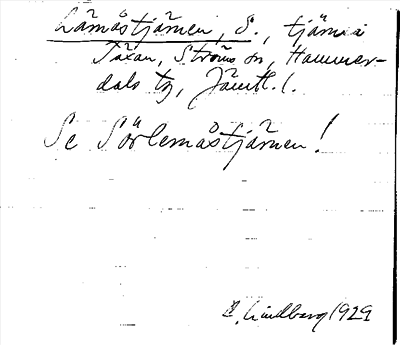 Lämåstjämen, S., tjärn i
Täxan, Ströms sn, Hammer-
dals tg, Jämtl.l.
Se Sörlemåstjämen!
E. Lindberg 1929